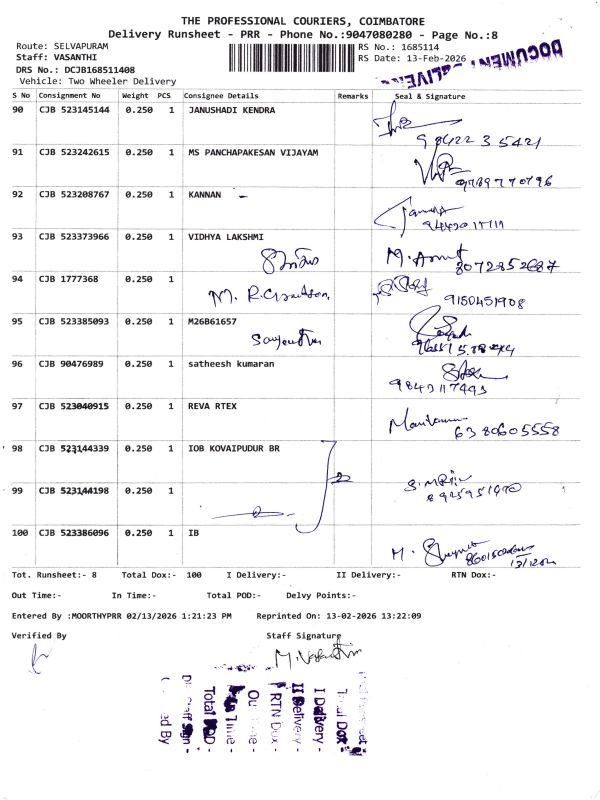 THE PROFESSIONAL COURIERS, COIMBATORE
Delivery Runsheet - PRR - Phone No.:9047080280 - Page No.:8
Route: SELVAPURAM
RS No.: 1685114
Staff: VASANTHI
RS Date: 13-Feb-2026
DRS No.: DCJB168511408
Vehicle: Two Wheeler Delivery
S No Consignment No Weight PCS Consignee Details Remarks Seal & Signature
90 CJB 523145144 0.250 1 JANUSHADI KENDRA
98422 35421
91 CJB 523242615 0.250 1 MS PANCHAPAKESAN VIJAYAM
9789770796
92 CJB 523208767 0.250 1 KANNAN
93 CJB 523373966 0.250 1 VIDHYA LAKSHMI
8072852687
94 CJB 1777368 0.250 1
9150451908
95 CJB 523385093 0.250 1 M26B61657
96 CJB 90476989 0.250 1 satheesh kumaran
97 CJB 523040915 0.250 1 REVA RTEX
6380605558
98 CJB 523144339 0.250 1 IOB KOVAIPUDUR BR
99 CJB 523144198 0.250 1
8925951970
100 CJB 523386096 0.250 1 IB
Tot. Runsheet:- 8 Total Dox:- 100 I Delivery:- II Delivery:- RTN Dox:-
Out Time:- In Time:- Total POD:- Delvy Points:-
Entered By :MOORTHYPRR 02/13/2026 1:21:23 PM Reprinted On: 13-02-2026 13:22:09
Verified By Staff Signature
Total Dox -
I Delivery -
II Delivery -
RTN Dox -